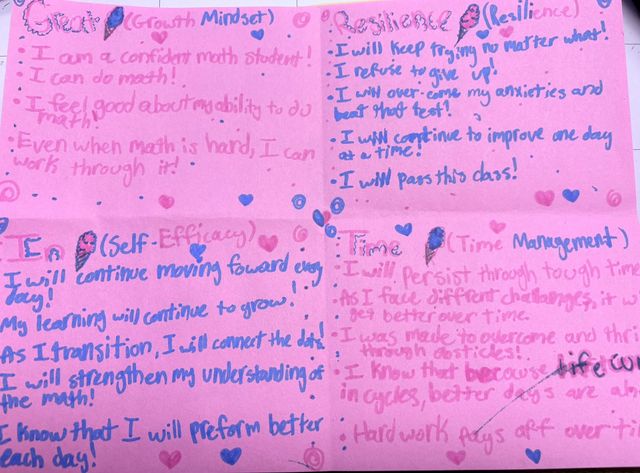 Great (Growth Mindset)
• I am a confident math student!
• I can do math!
• I feel good about my ability to do
math!
• Even when math is hard, I can
work through it!
Resilience (Resilience)
• I will keep trying no matter what!
• I refuse to give up!
• I will over-come my anxieties and
beat that test!
• I will continue to improve one day
at a time!
• I will pass this class!
In (Self-Efficacy)
I will continue moving foward every
day!
My learning will continue to grow!
As I transition, I will connect the dots!
I will strengthen my understanding of
the math!
I know that I will preform better
each day!
Time (Time Management)
• I will persist through tough time
• As I face diffrent challanges, it w
get better over time.
• I was made to overcome and thri
through obsticles!
• I know that because life
in cycles, better days are
• Hard work pays off over ti